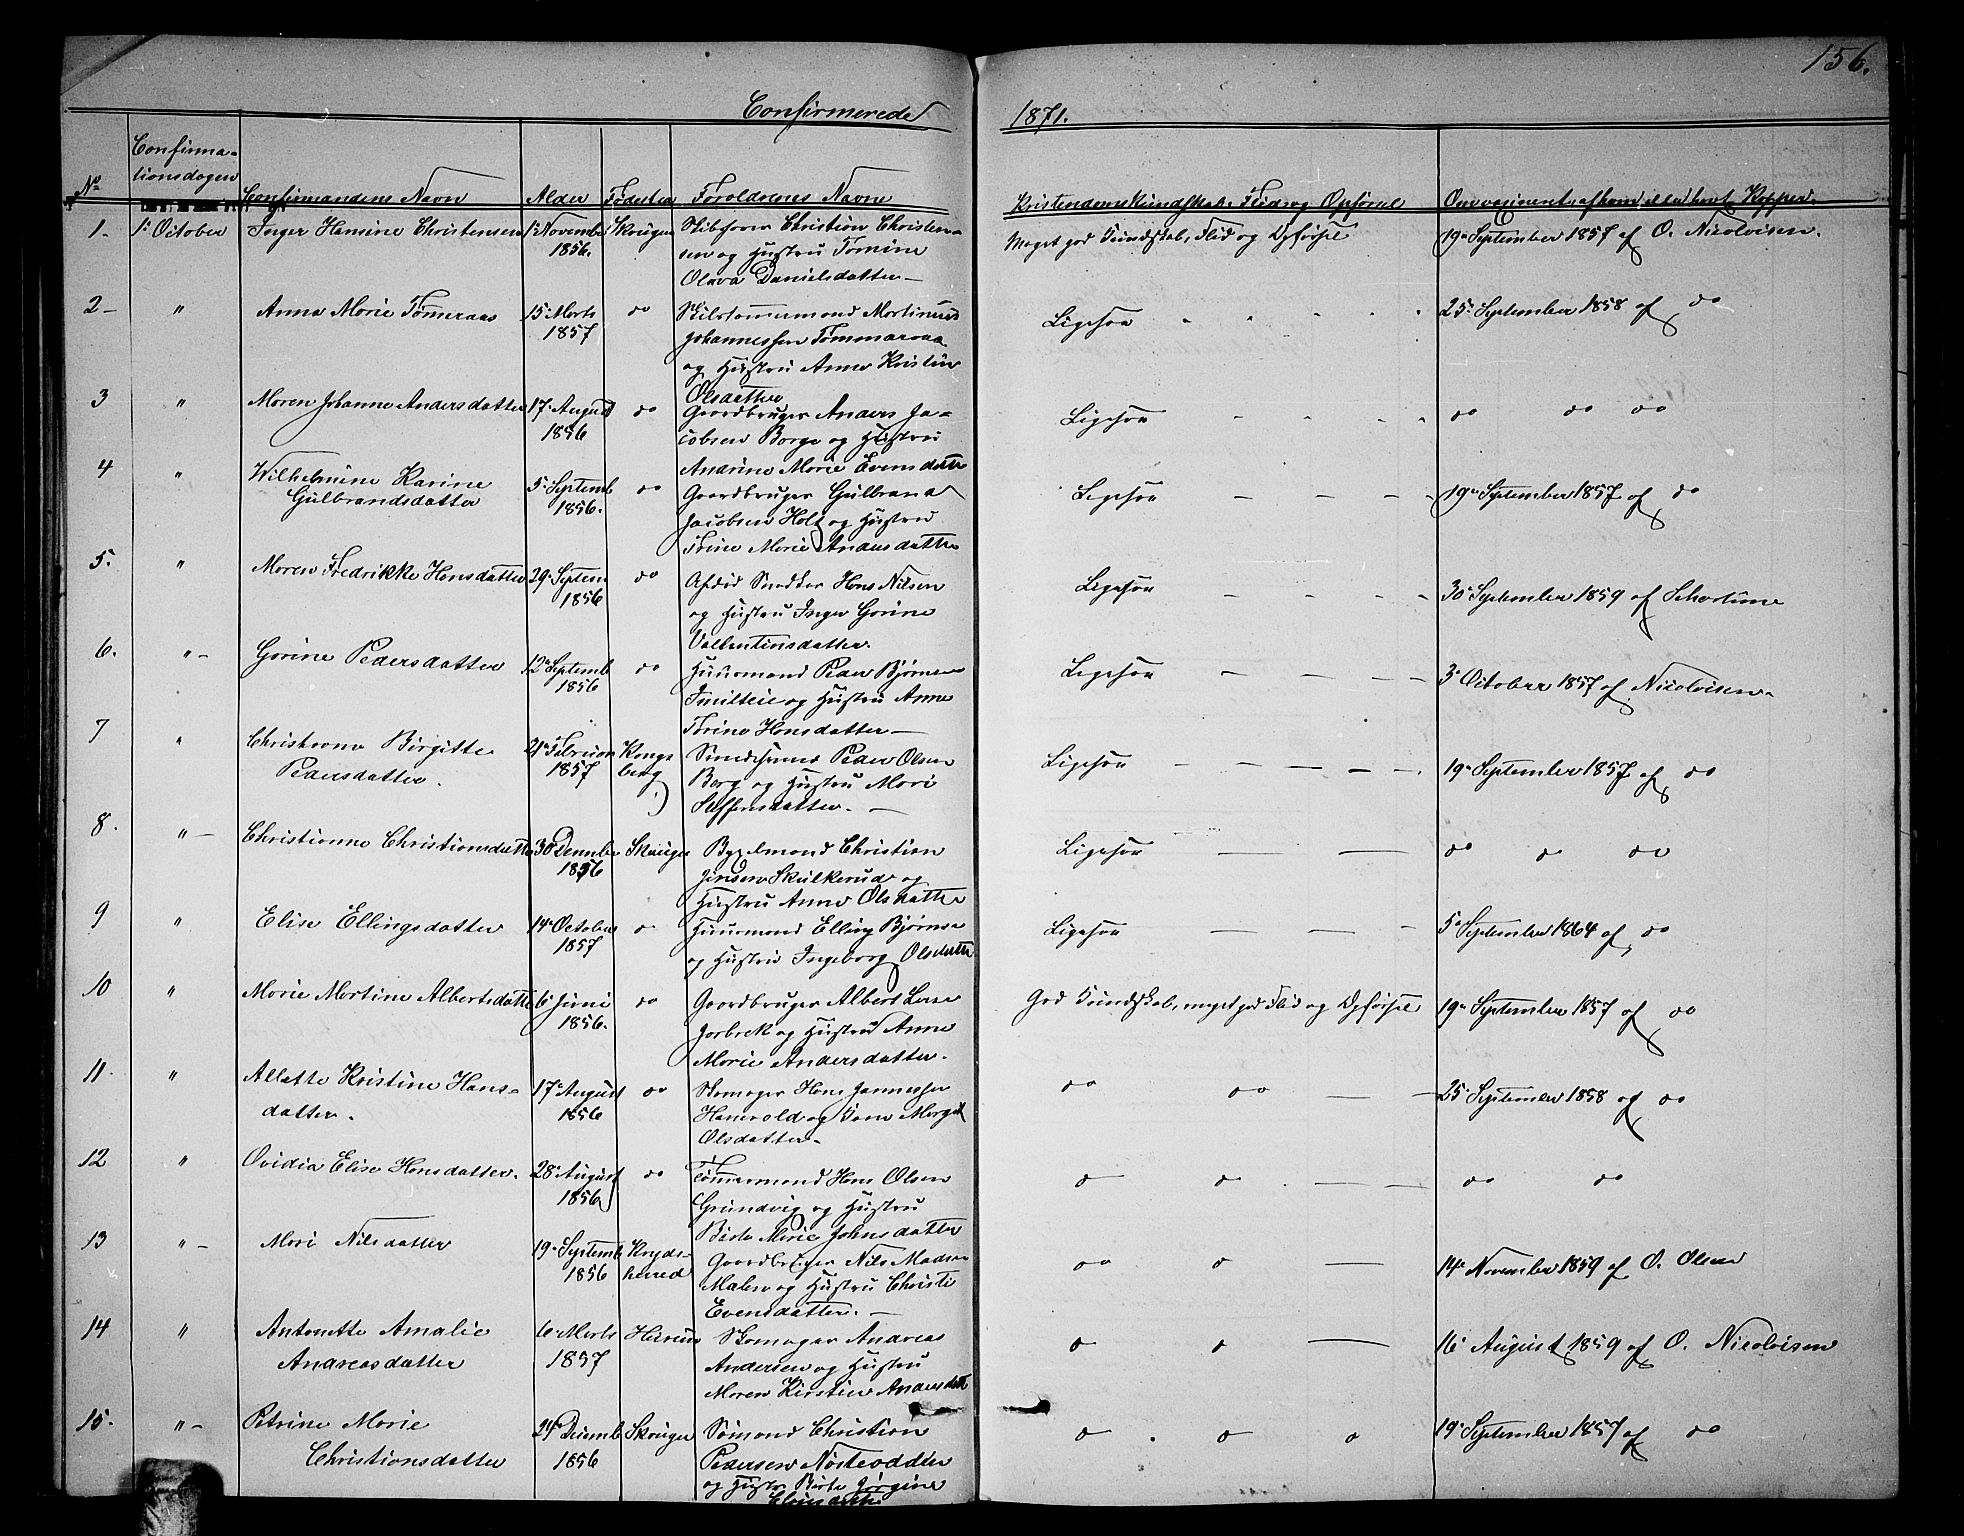 156.
Confirmerede 1871.
No Confirmationsdagen Confirmandens Navn Alder Fødested Forældrenes Navne Kristendomskundskab, Flid og Opførsel Om vaccineret af hvem eller havt Kopper.
1. 1ste October Inger Hansine Christensen 1 Novemb 1856. Skouger Skibsfører Christian Christensen og Hustru Tomine Olava Danielsdatter Meget god Kundskab, Flid og Opførsel 19de September 1857 af O. Nicolaisen.
2 " Anna Marie Tømeraas 15 Marts 1857 do Skibstømermand Martinius Johannessen Tømmeraas og Hustru Anne Kristine Olsdatter Ligesaa 25 September 1858 af do
3 " Maren Johanne Andersdatter 17 August 1856 do Gaardbruger Anders Jacobsen Berge og Hustru Andrine Marie Evensdatter Ligesaa do do do
4 " Wilhelmine Karine Gulbrandsdatter 5 Septemb 1856. do Gaardbruger Gulbrand Jacobsen Holt og Hustru Trine Marie Andersdatter Ligesaa 19de September 1857 af do
5. " Maren Fredrikke Hansdatter 29 Septem 1856 do Afdød Snedker Hans Nilsen og Hustru Inger Gorine Vallentinsdatter. Ligesaa 30 September 1859 af
6. " Gorine Pedersdatter 12 Septemb 1856 do Huusmand Peder Bjørnsen og Hustru Anne Trine Hansdatter Ligesaa 3 October 1857 af Nicolaisen
7 " Birgitte Pedersdatter. 21 Februar 1857 Kongsberg Peder Olsen Berg og Hustru Mari Steffensdatter. Ligesaa 19de September 1857 af do
8. " Christianne Christiansdatter 30 Decmber 1856 Skouger Christian Jensen Skulkerud og Hustru Anne Olsdatter Ligesaa do do do
9 " Elise Ellingsdatter 14 October 1857 do Huusmand Elling Bjørnsen og Hustru Ingeborg Olsdatter Ligesaa 5 September 1864 af do
10 " Marie Martine Albertsdatter 6 Juni 1856. do Gaardbruger Albert og Hustru Anne Marie Andersdatter. God Kundskab, meget god Flid og Opførsel 19de September 1857 af do
11. " Allette Kristine Hansdatter. 17 August 1856 do Skomager Hans Jannessen Hanevold og Kone Margit Olsdatter. do do 25 September 1858 af do
12 " Ovidia Elise Hansdatter. 28 August 1856 do Tømermand Hans Olsen Grundvig og Hustru Marie Johnsdatter do do do do
13 " Mari Nilsdatter 19 Septemb 1856 Krydsherred Gaardbruger Nils Madsen og Hustru Christi Evensdatter. do do 14 November 1859 af O. Olsen
14 " Antonette Amalie Andreasdatter 6 Marts 1857 Skomager Andreas Andersen og Hustru Maren Kirstine Andersdatter do do 16 August 1859 af O. Nicolaisen
15. " Petrine Marie Christiansdatter 24 Decemb 1856 Skouger Sømand Christian Pedersen og Hustru Jørgine do do do 19 September 1857 af do